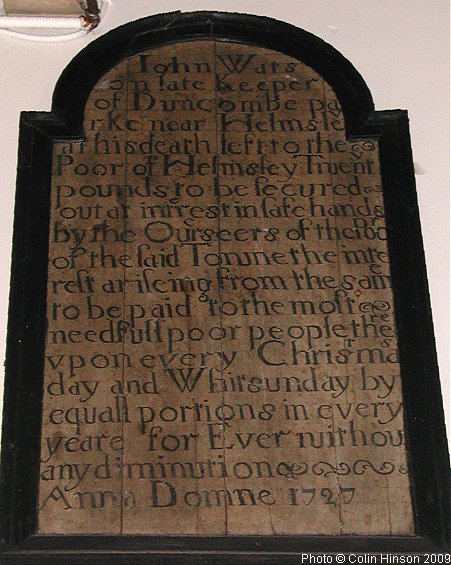 Iohn Wats
on late keeper
of Duncombe pa
rke near Helmsle
at his death left to the
Poor of Helmsley Truent
pounds to be ſecured
out at intrest in ſafe hands
by the Ourseers of the Poo
of the ſaid Towne the inte
reſt ariſeing from the Sam
to be paid to the moſt
needfull poor people the
vpon every Chrisma
day and Whitsunday by
equall portions in every
yeare for Ever withou
any diminution
Anna Domne 1727
Photo © Colin Hinson 2009